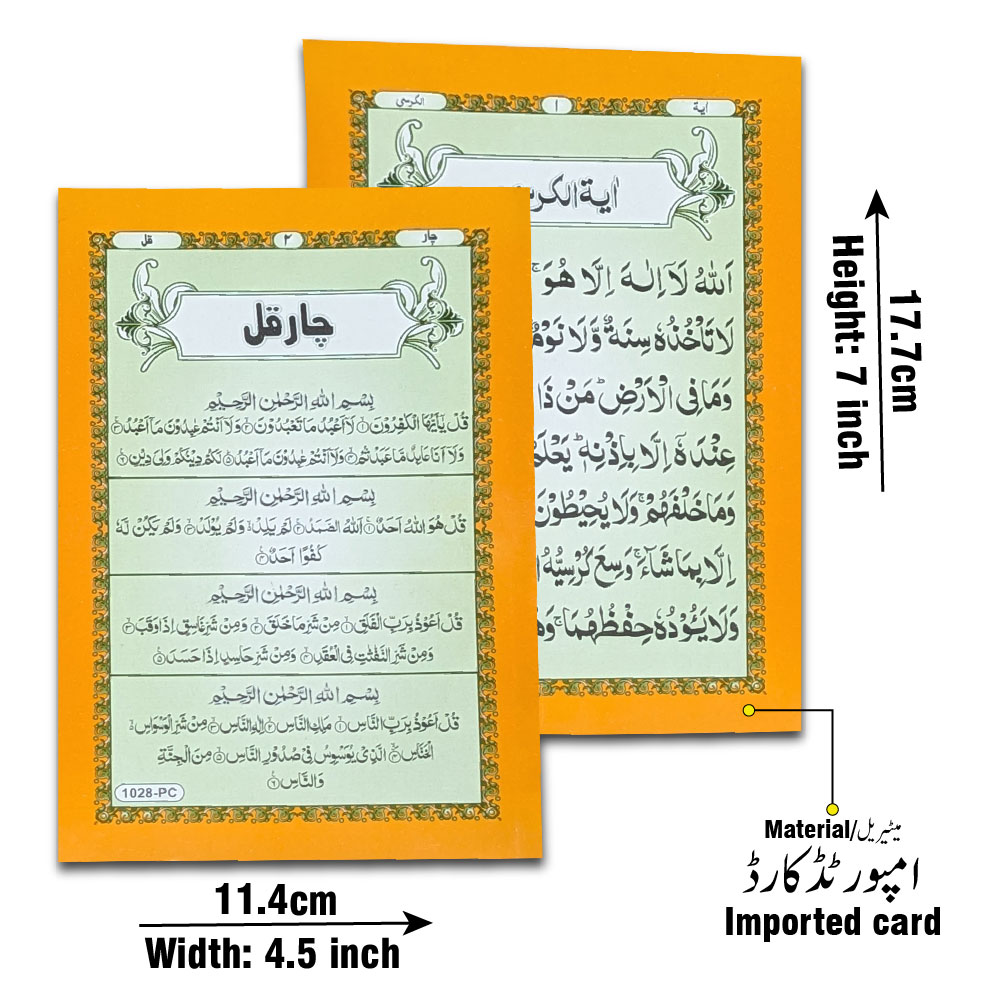 اية
١
الكرسى
اية الكرسى
اَللّٰهُ لَاۤ اِلٰهَ اِلَّا هُوَ ۚ
لَا تَاْخُذُهٗ سِنَةٌ وَّلَا نَوْمٌ
وَمَا فِى الْاَرْضِ ؕ مَنْ ذَا
عِنْدَهٗۤ اِلَّا بِاِذْنِهٖ ؕ يَعْلَمُ
وَمَا خَلْفَهُمْ ۚ وَلَا يُحِيْطُوْنَ
اِلَّا بِمَا شَآءَ ۚ وَسِعَ كُرْسِيُّهُ
وَلَا يَـُٔوْدُهٗ حِفْظُهُمَا ۚ وَهُوَ
چار
٢
قل
چار قل
بِسْمِ اللّٰهِ الرَّحْمٰنِ الرَّحِيْمِ
قُلْ يٰۤاَيُّهَا الْكٰفِرُوْنَ ۙ﴿۱﴾ لَاۤ اَعْبُدُ مَا تَعْبُدُوْنَ ۙ﴿۲﴾ وَلَاۤ اَنْتُمْ عٰبِدُوْنَ مَاۤ اَعْبُدُ ۚ﴿۳﴾
وَلَاۤ اَنَا عَابِدٌ مَّا عَبَدْتُّمْ ۙ﴿۴﴾ وَلَاۤ اَنْتُمْ عٰبِدُوْنَ مَاۤ اَعْبُدُ ؕ﴿۵﴾ لَكُمْ دِيْنُكُمْ وَلِىَ دِيْنِ ﴿۶﴾
بِسْمِ اللّٰهِ الرَّحْمٰنِ الرَّحِيْمِ
قُلْ هُوَ اللّٰهُ اَحَدٌ ۚ﴿۱﴾ اَللّٰهُ الصَّمَدُ ۚ﴿۲﴾ لَمْ يَلِدْ ۙ وَلَمْ يُوْلَدْ ۙ﴿۳﴾ وَلَمْ يَكُنْ لَّهٗ
كُفُوًا اَحَدٌ ﴿۴﴾
بِسْمِ اللّٰهِ الرَّحْمٰنِ الرَّحِيْمِ
قُلْ اَعُوْذُ بِرَبِّ الْفَلَقِ ۙ﴿۱﴾ مِنْ شَرِّ مَا خَلَقَ ۙ﴿۲﴾ وَمِنْ شَرِّ غَاسِقٍ اِذَا وَقَبَ ۙ﴿۳﴾
وَمِنْ شَرِّ النَّفّٰثٰتِ فِى الْعُقَدِ ۙ﴿۴﴾ وَمِنْ شَرِّ حَاسِدٍ اِذَا حَسَدَ ﴿۵﴾
بِسْمِ اللّٰهِ الرَّحْمٰنِ الرَّحِيْمِ
قُلْ اَعُوْذُ بِرَبِّ النَّاسِ ۙ﴿۱﴾ مَلِكِ النَّاسِ ۙ﴿۲﴾ اِلٰهِ النَّاسِ ۙ﴿۳﴾ مِنْ شَرِّ الْوَسْوَاسِ ۙ
الْخَنَّاسِ ۙ﴿۴﴾ الَّذِىْ يُوَسْوِسُ فِىْ صُدُوْرِ النَّاسِ ۙ﴿۵﴾ مِنَ الْجِنَّةِ
وَالنَّاسِ ﴿۶﴾
1028-PC
17.7cm
Height: 7 inch
Material/میٹیریل
امپورٹڈ کارڈ
Imported card
11.4cm
Width: 4.5 inch